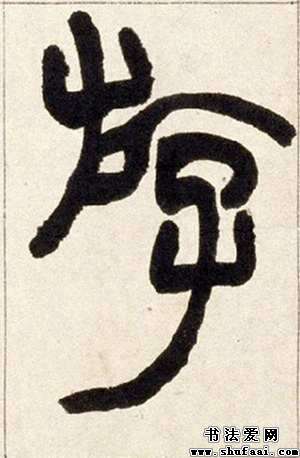 斿
书法爱网
www.shufaai.com